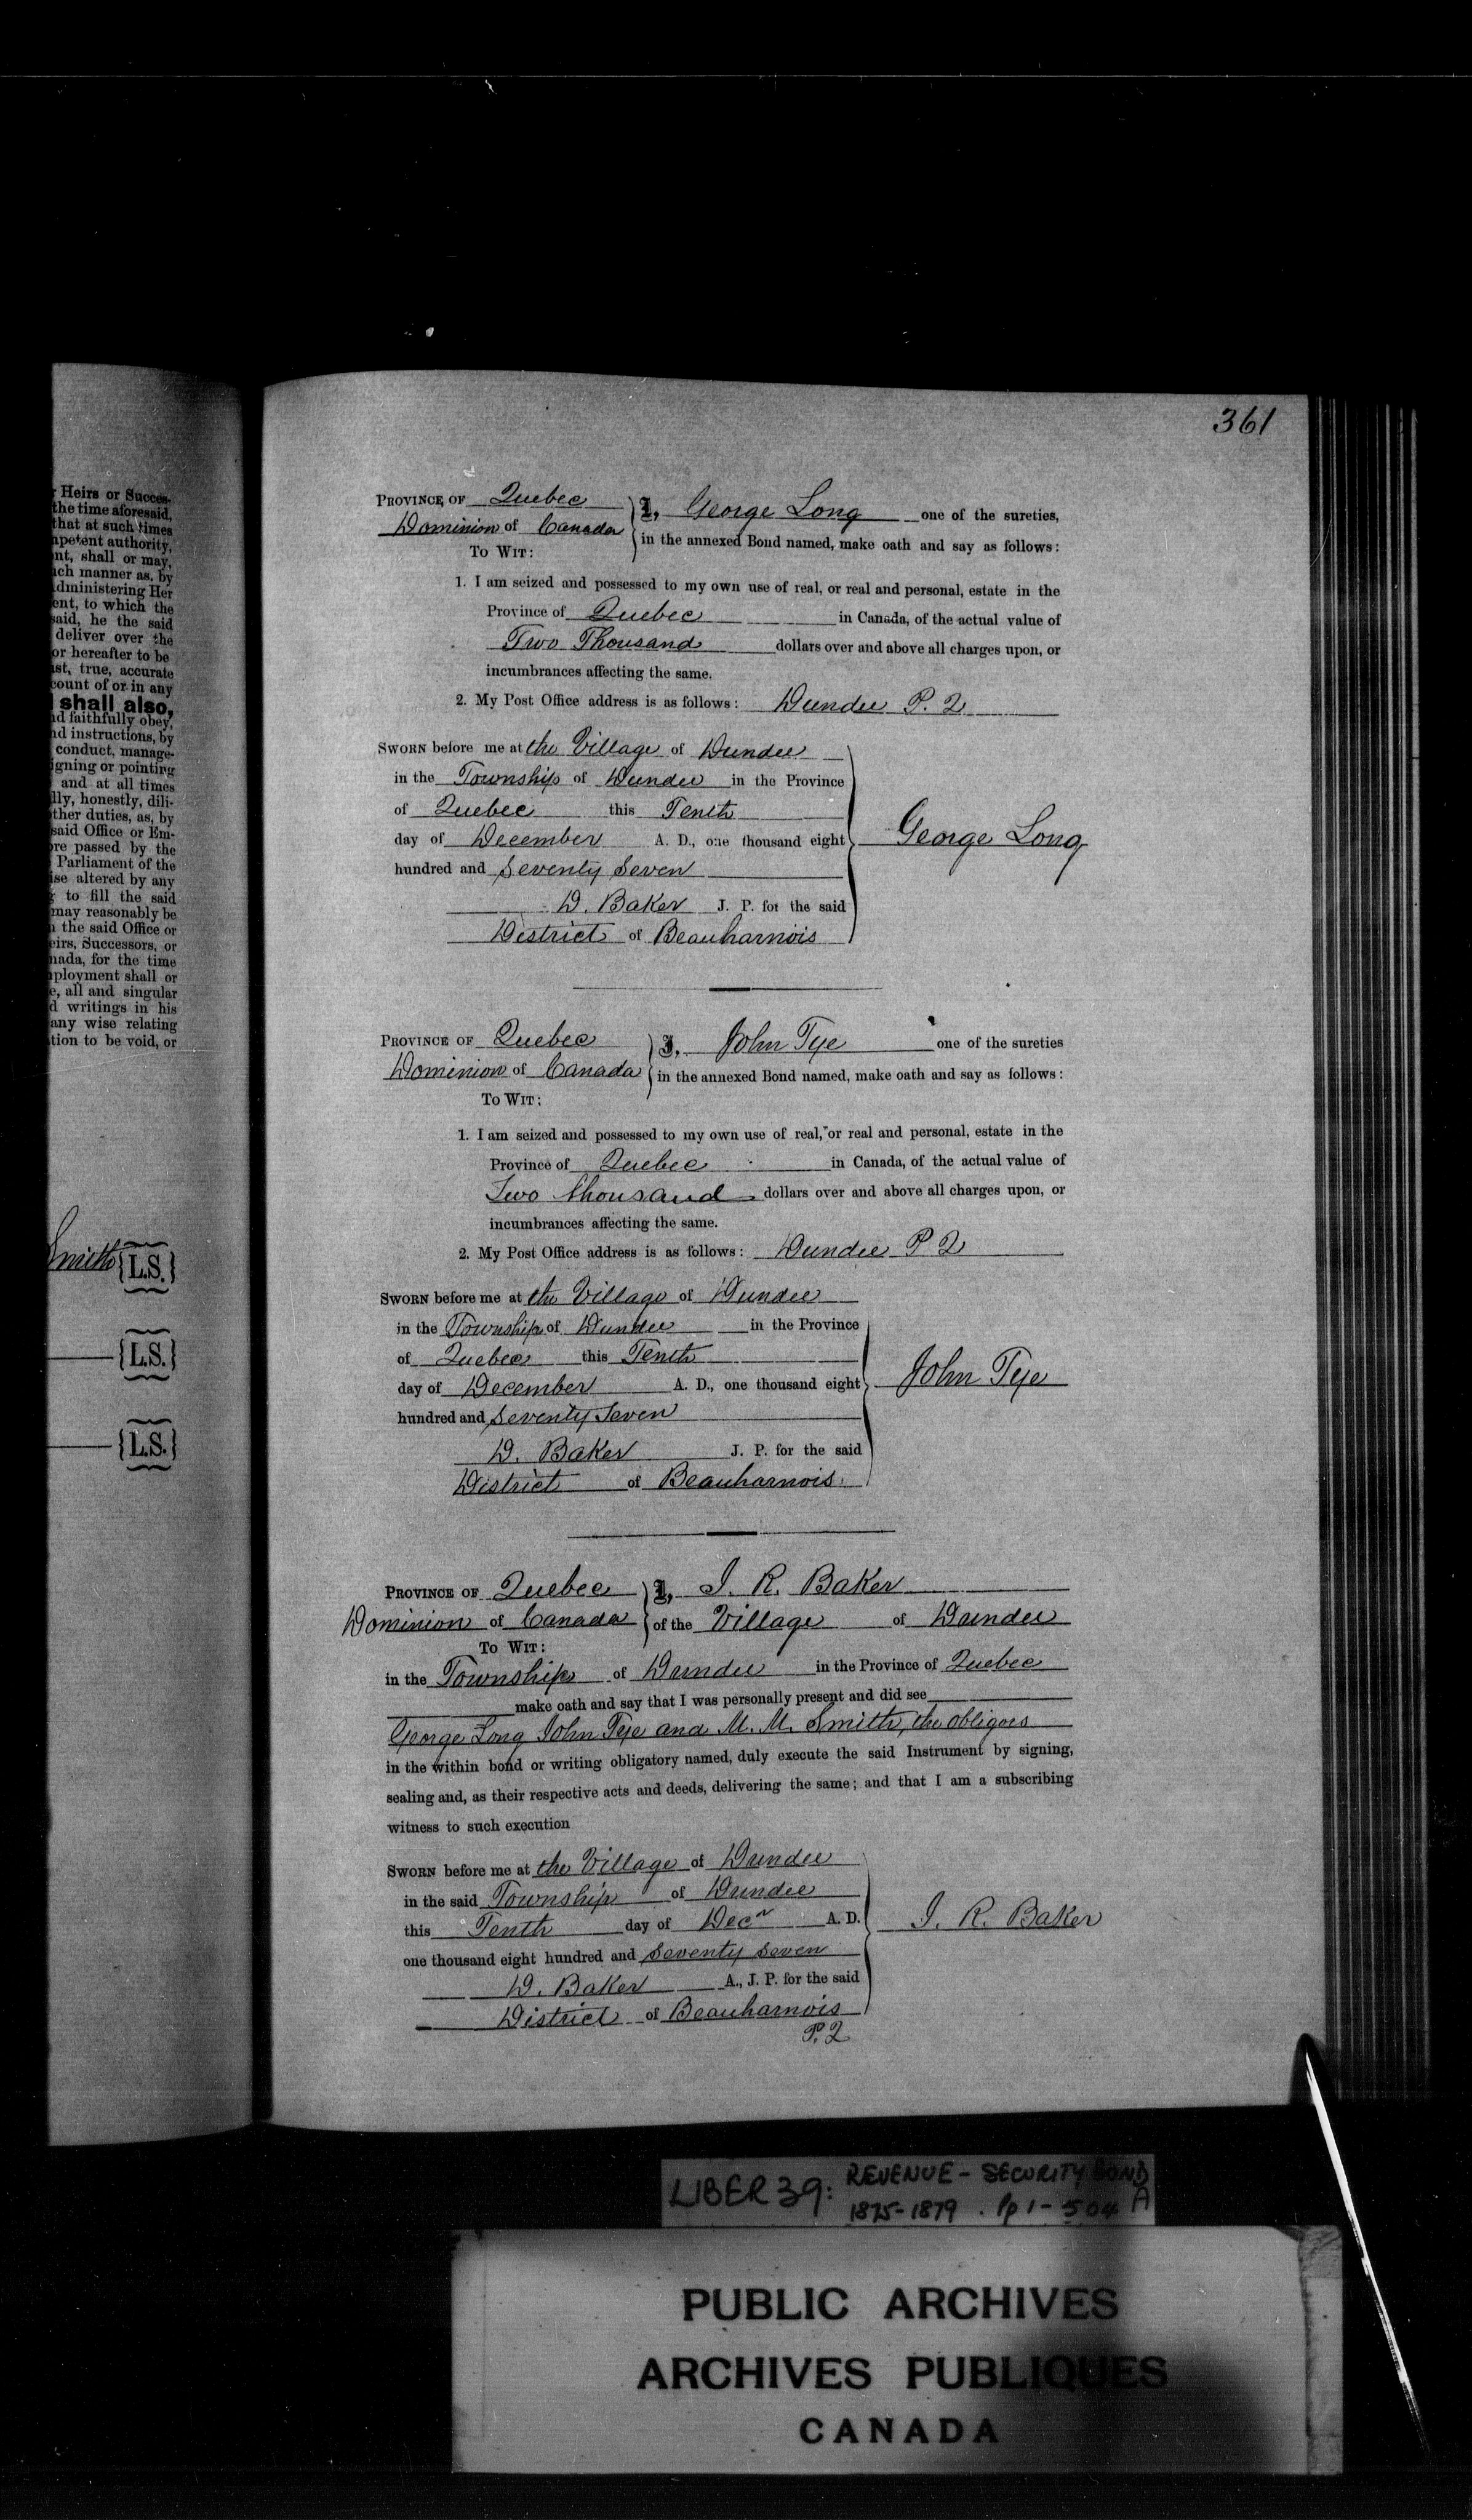 Heirs or Succes-
the time aforesaid,
that at such times
petent authority,
nt, shall or may,
ch manner as, by
dministering Her
ent, to which the
said, he the said
deliver over the
or hereafter to be
st, true, accurate
count of or in any
shall also,
d faithfully obey,
nd instructions, by
conduct, manage-
igning or pointing
and at all times
lly, honestly, dili-
ther duties, as, by
said Office or Em-
re passed by the
Parliament of the
ise altered by any
to fill the said
may reasonably be
the said Office or
eirs, Successors, or
nada, for the time
ployment shall or
e, all and singular
d writings in his
any wise relating
tion to be void, or
Smith {L.S.}
{L.S.}
{L.S.}
361
PROVINCE OF Quebec } I, George Long one of the sureties,
Dominion of Canada in the annexed Bond named, make oath and say as follows:
TO WIT:
1. I am seized and possessed to my own use of real, or real and personal, estate in the
Province of Quebec in Canada, of the actual value of
Two Thousand dollars over and above all charges upon, or
incumbrances affecting the same.
2. My Post Office address is as follows: Dundee P. Q
SWORN before me at the Village of Dundee
in the Township of Dundee in the Province
of Quebec this Tenth
day of December A. D., one thousand eight George Long
hundred and Seventy Seven
D. Baker J. P. for the said
District of Beauharnois
PROVINCE OF Quebec } I, John Tye one of the sureties
Dominion of Canada in the annexed Bond named, make oath and say as follows:
TO WIT:
1. I am seized and possessed to my own use of real, or real and personal, estate in the
Province of Quebec in Canada, of the actual value of
Two thousand dollars over and above all charges upon, or
incumbrances affecting the same.
2. My Post Office address is as follows: Dundee P Q
SWORN before me at the Village of Dundee
in the Township of Dundee in the Province
of Quebec this Tenth
day of December A. D., one thousand eight John Tye
hundred and Seventy Seven
D. Baker J. P. for the said
District of Beauharnois
PROVINCE OF Quebec } I, J. R. Baker
Dominion of Canada of the Village of Dundee
TO WIT:
in the Township of Dundee in the Province of Quebec
make oath and say that I was personally present and did see
George Long John Tye and M. M. Smith, the obligors
in the within bond or writing obligatory named, duly execute the said Instrument by signing,
sealing and, as their respective acts and deeds, delivering the same; and that I am a subscribing
witness to such execution
SWORN before me at the Village of Dundee
in the said Township of Dundee
this Tenth day of Decr A. D. J. R. Baker
one thousand eight hundred and Seventy Seven
D. Baker A., J. P. for the said
District of Beauharnois
P. Q
LIBER 39: REVENUE - SECURITY BOND
1875-1879 . Pp 1 - 504 A
PUBLIC ARCHIVES
ARCHIVES PUBLIQUES
CANADA